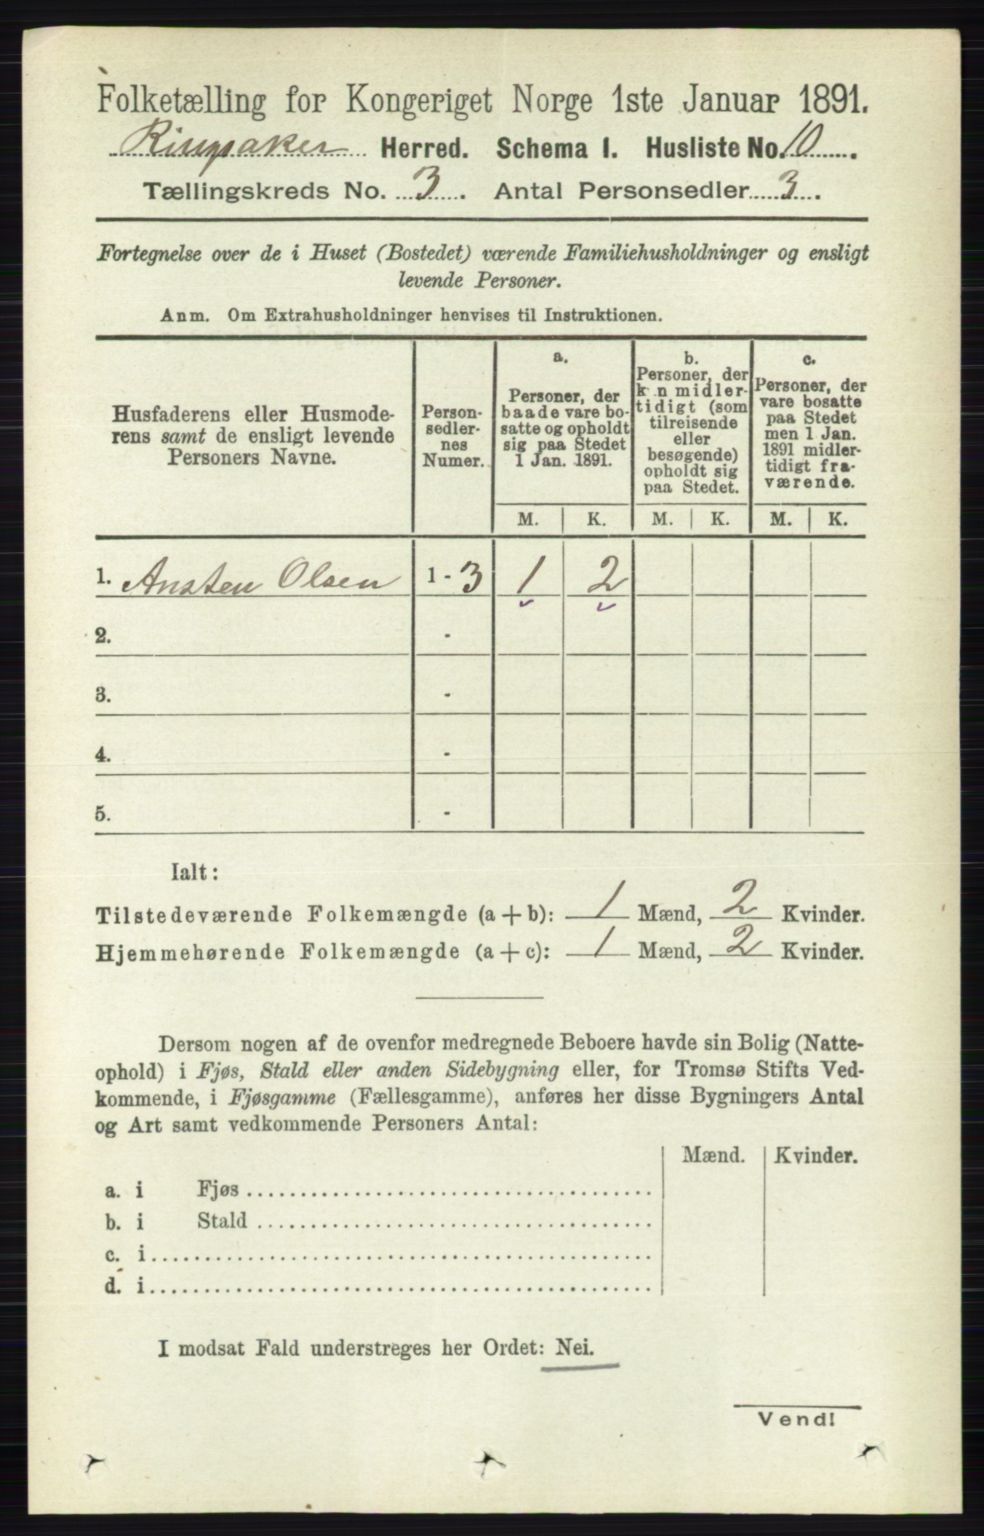 Folketælling for Kongeriget Norge 1ste Januar 1891.
Ringsaker Herred. Schema I. Husliste No. 10.
Tællingskreds No. 3. Antal Personsedler 3.
Fortegnelse over de i Huset (Bostedet) værende Familiehusholdninger og ensligt
levende Personer.
Anm. Om Extrahusholdninger henvises til Instruktionen.
Husfaderens eller Husmode-
rens samt de ensligt levende
Personers Navne.
Person-
sedler-
nes
Numer.
a.
Personer, der
baade vare bo-
satte og opholdt
sig paa Stedet
1 Jan. 1891.
b.
Personer, der
kun midler-
tidigt (som
tilreisende
eller
besøgende)
opholdt sig
paa Stedet.
c.
Personer, der
vare bosatte
paa Stedet
men 1 Jan.
1891 midler-
tidigt fra-
værende.
M. K. M. K. M. K.
1. Austen Olsen 1 - 3 1 2
2. -
3. -
4. -
5. -
Ialt:
Tilstedeværende Folkemængde (a + b): 1 Mænd, 2 Kvinder.
Hjemmehørende Folkemængde (a + c): 1 Mænd, 2 Kvinder.
Dersom nogen af de ovenfor medregnede Beboere havde sin Bolig (Natte-
ophold) i Fjøs, Stald eller anden Sidebygning eller, for Tromsø Stifts Ved-
kommende, i Fjøsgamme (Fællesgamme), anføres her disse Bygningers Antal
og Art samt vedkommende Personers Antal:
Mænd. Kvinder.
a. i Fjøs
b. i Stald
c. i
d. i
I modsat Fald understreges her Ordet: Nei.
Vend!